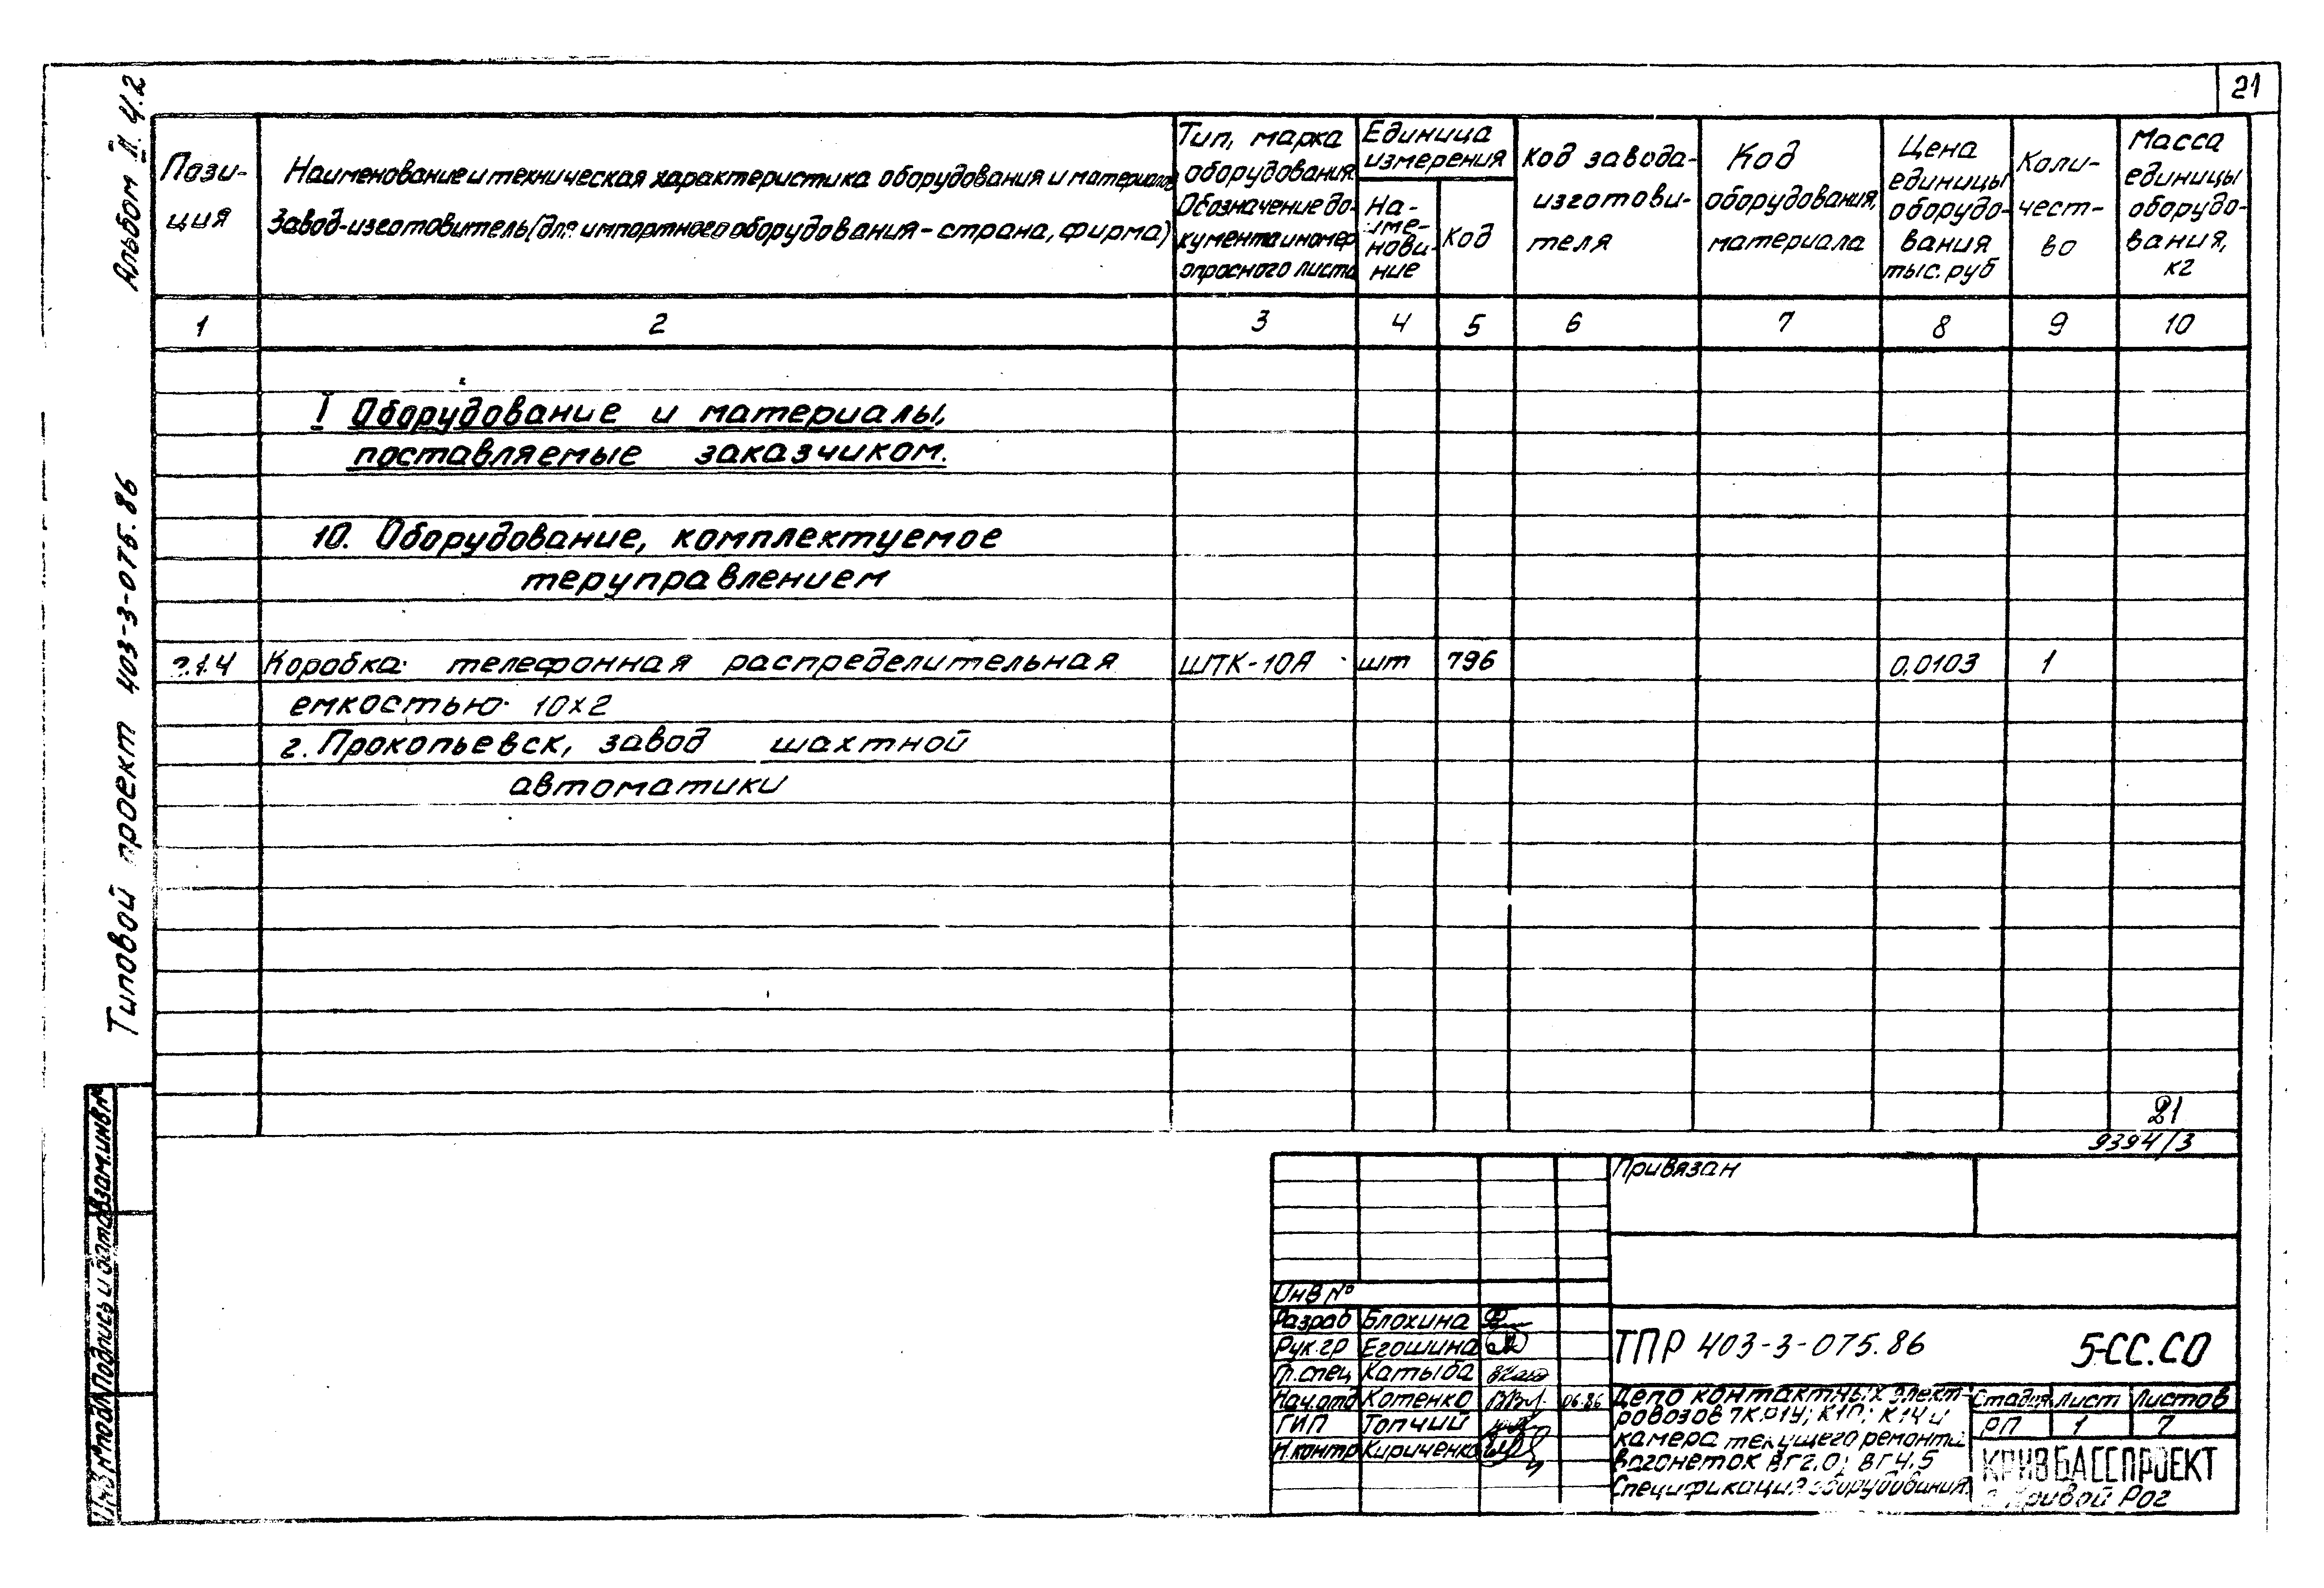 21
Альбом II. Ч.2
Типовой проект 403-3-075.86
Пози-
ция
Наименование и техническая характеристика оборудования и материалов
Завод-изготовитель (для импортного оборудования - страна, фирма)
Тип, марка
оборудования.
Обозначение до-
кумента и номер
опросного листа
Единица
измерения
На-
име-
нова-
ние
Код
Код завода-
изготови-
теля
Код
оборудования,
материала
Цена
единицы
оборудо-
вания
тыс. руб
Коли-
чест-
во
Масса
единицы
оборудо-
вания,
кг
1 2 3 4 5 6 7 8 9 10
I Оборудование и материалы,
поставляемые заказчиком.
10. Оборудование, комплектуемое
теруправлением
1.4 Коробка телефонная распределительная ШТК-10А шт 796 0,0103 1
емкостью 10х2
г. Прокопьевск, завод шахтной
автоматики
21
9394/3
Привязан
Инв №
Разраб Блохина
Рук.гр Егошина
Гл.спец Катыба
Нач.отд Котенко 06.86
ГИП Топчий
Н.контр Кириченко
ТПР 403-3-075.86 5-СС.СО
Депо контактных элект-
ровозов 7КР1У; К10; К14 и
камера текущего ремонта
вагонеток ВГ2,0; ВГ4,5
Спецификация оборудования.
Стадия Лист Листов
РП 1 7
КРИВБАССПРОЕКТ
г. Кривой Рог
Инв № подл. Подпись и дата Взам.инв.№